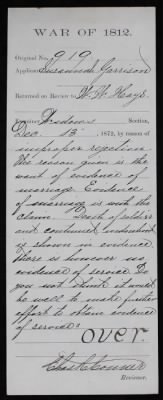 WAR OF 1812.
Original No. 919
Applicant Susannah Garrison
Returned on Review to W. W. Hays
Examiner, Widows Section,
Dec. 13", 1872, by reason of
improper rejection
the reason given is the
want of evidence of
marriage. Evidence
of marriage is with the
claim. Death of soldier
and continued widowhood
is shown in evidence
there is however no
evidence of service. Do
you not think it would
be well to make further
effort to obtain evidence
of service?
over.
Reviewer.